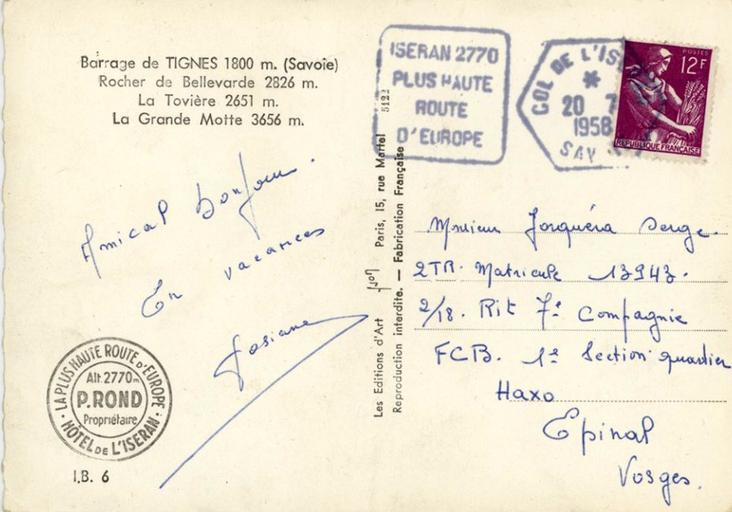 Barrage de TIGNES 1800 m. (Savoie)
Rocher de Bellevarde 2826 m.
La Tovière 2651 m.
La Grande Motte 3656 m.
Amical bonjour.
En vacances
Josiane
LA PLUS HAUTE ROUTE D'EUROPE
Alt. 2770 m
P. ROND
Propriétaire
HÔTEL DE L'ISERAN
I.B. 6
Les Editions d'Art Paris, 15, rue Martel 5122
Reproduction interdite. — Fabrication Française
ISERAN 2770
PLUS HAUTE
ROUTE
D'EUROPE
COL DE L'IS
20 7
1958
SAV
POSTES
12F
REPUBLIQUE FRANÇAISE
Monsieur Jorquéra Serge.
2TR. Matricule 13943.
2/18. Rit 7e Compagnie
FCB. 1e Section quartier
Haxo
Epinal
Vosges.